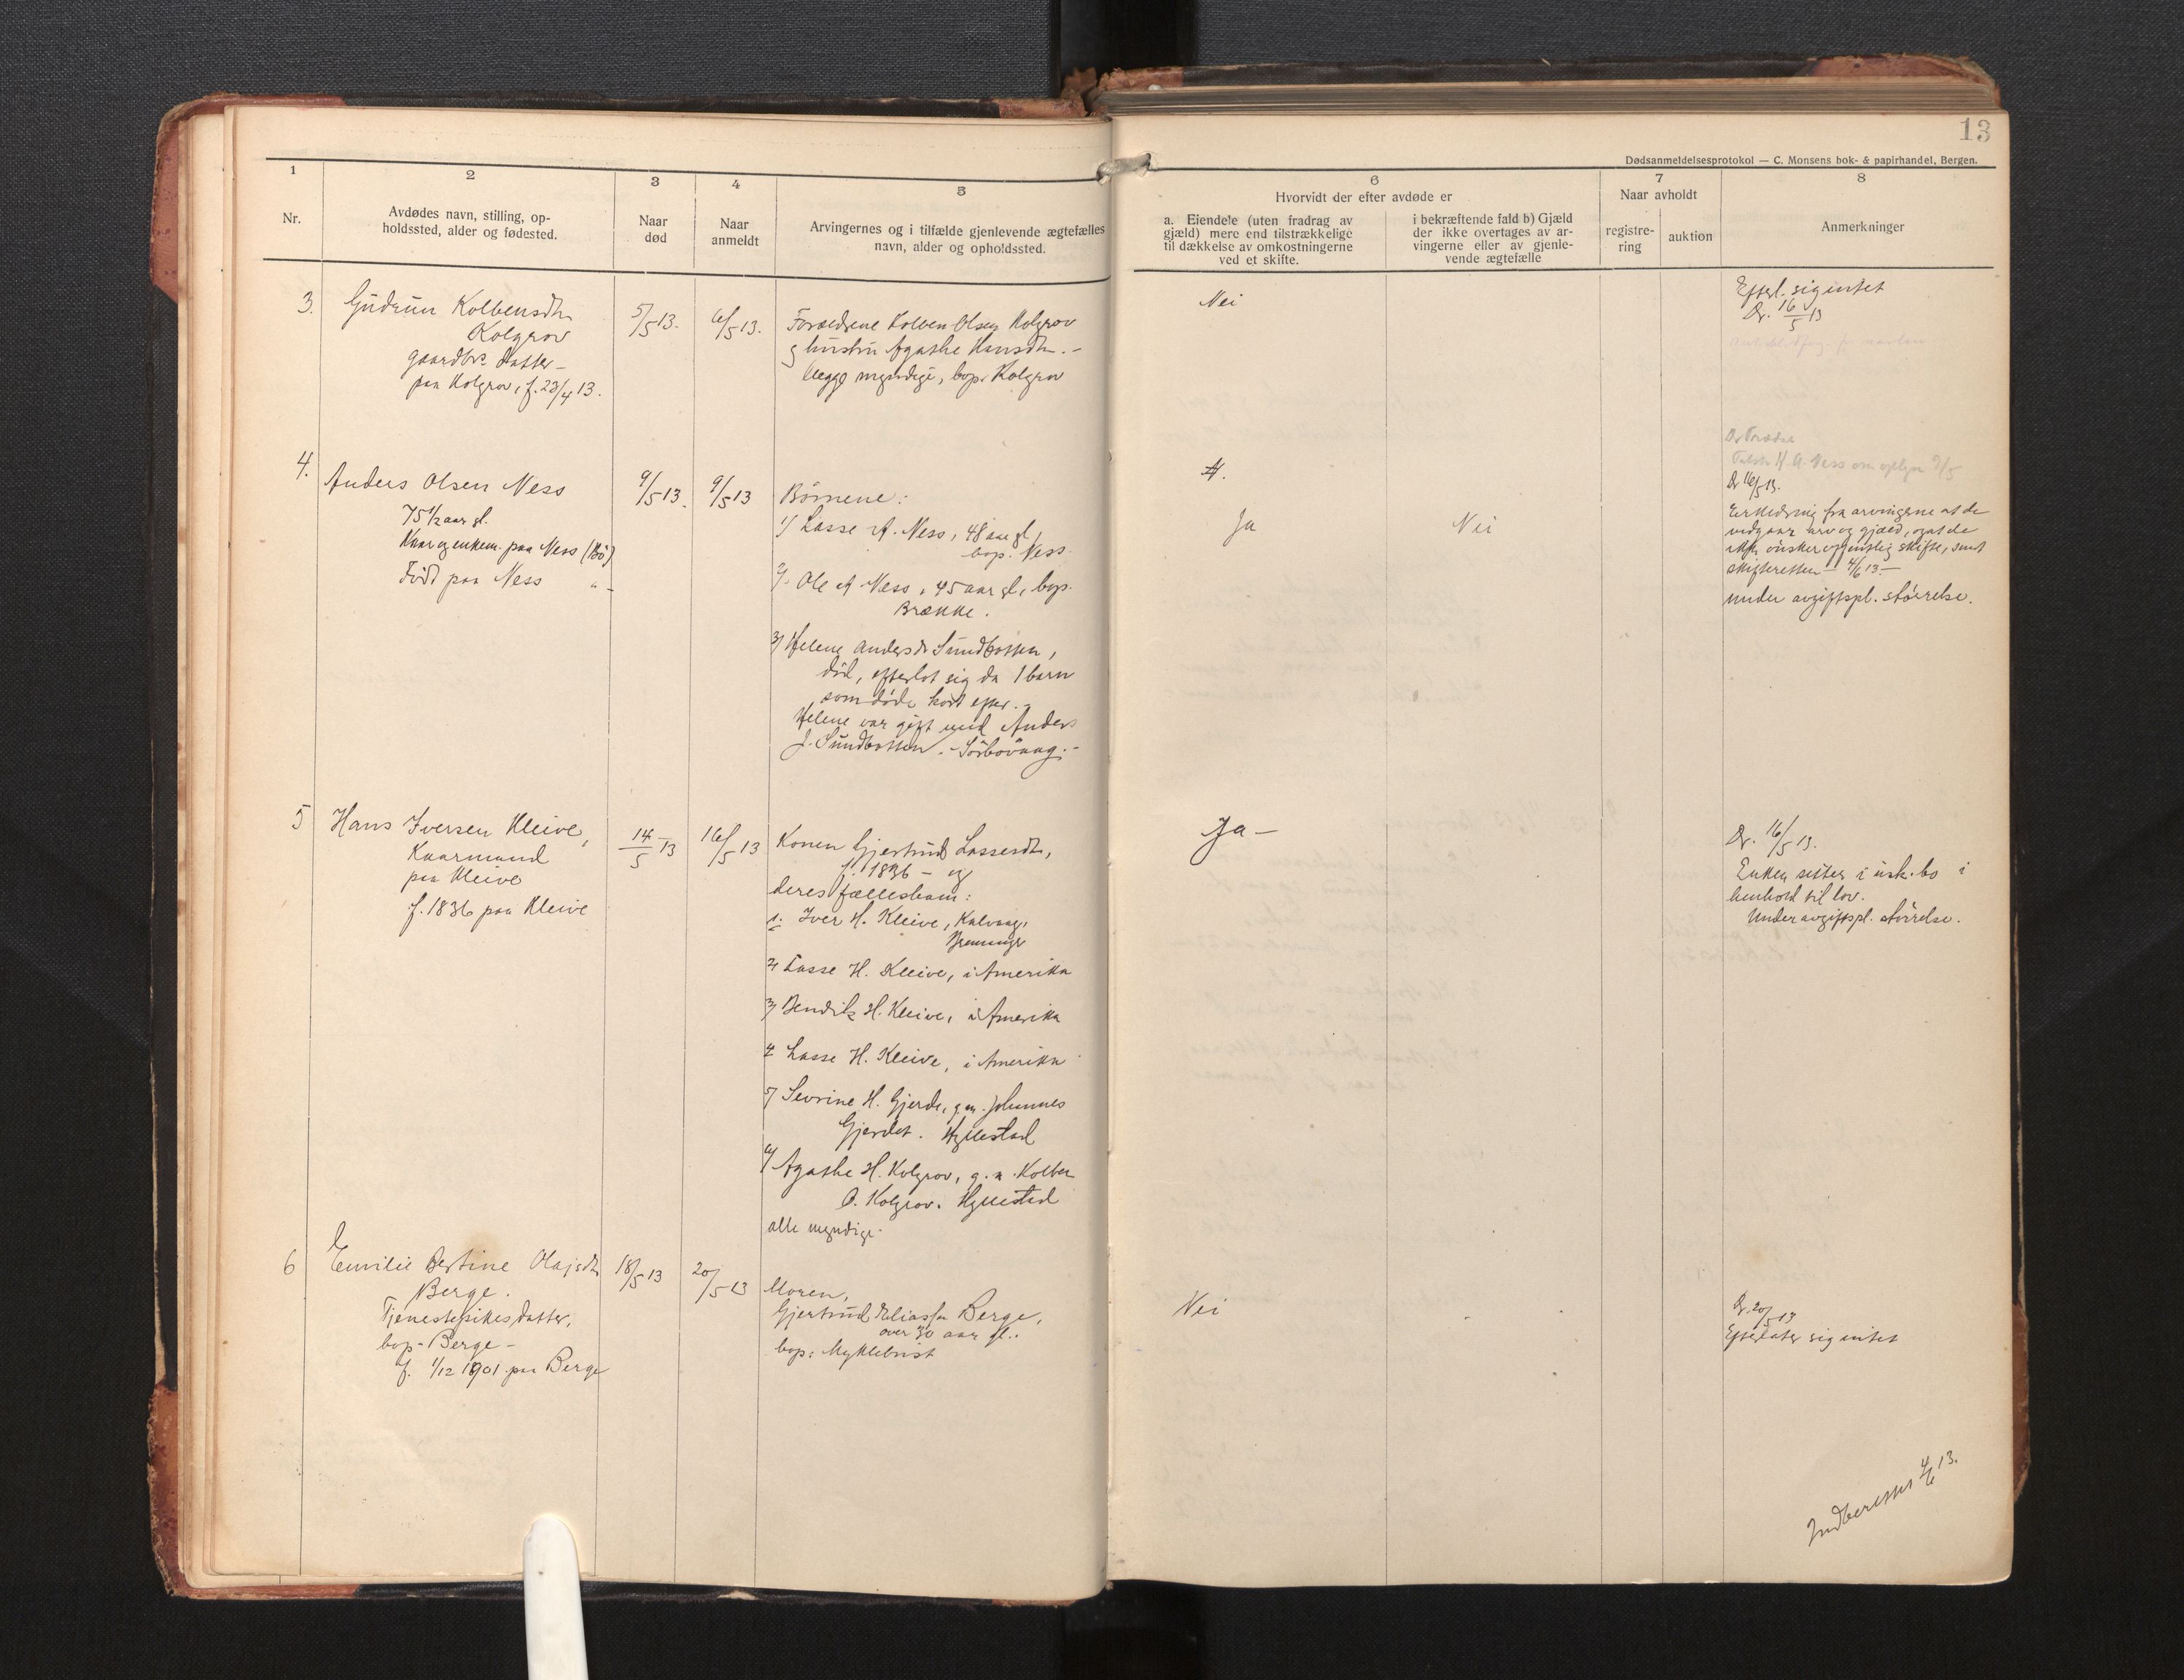 13
Dødsanmeldelsesprotokol — C. Monsens bok- & papirhandel, Bergen.
1
Nr.
2
Avdødes navn, stilling, op-
holdssted, alder og fødested.
3
Naar
død
4
Naar
anmeldt
5
Arvingernes og i tilfælde gjenlevende ægtefælles
navn, alder og opholdssted.
6
Hvorvidt der efter avdøde er
a. Eiendele (uten fradrag av
gjæld) mere end tilstrækkelige
til dækkelse av omkostningerne
ved et skifte.
i bekræftende fald b) Gjæld
der ikke overtages av ar-
vingerne eller av gjenle-
vende ægtefælle
7
Naar avholdt
registre-
ring
auktion
8
Anmerkninger
3.
Gudrun Kolbensdtr
Kolgrov
gaardbr. datter -
paa Kolgrov, f. 23/4 13.
5/5 13.
6/5 13.
Forældrene Kolben Olsen Kolgrov
og hustru Agathe Hansdtr. -
begge myndige, bop. Kolgrov
Nei
Efterl. sig intet
Dr. 16/5 13
4.
Anders Olsen Ness
75 1/2 aar gl.
Kaar og enkem. paa Ness (Bö)
Född paa Ness " -
9/5 13.
9/5 13
Börnene:
1/ Lasse A. Ness, 48 aar gl,
bop. Ness.
2/. Ole A Ness, 45 aar gl, bop.
Brække.
3/ Helene Andersdr Sundbotten,
död, efterlot sig da 1 barn
som döde kort efter. -
Helene var gift med Anders
J. Sundbotten. - Sörbövaag. -
Ja
Nei
H. A. Ness om 9/5
Dr 16/5 13.
Erklæring fra arvingerne at de
vedgaar arv og gjæld, og at de
ikke önsker offentlig skifte, sent
skifteretten - 4/6 13. -
under avgiftspl. störrelse.
5
Hans Iversen Kleive,
Kaarmand
paa Kleive
f. 1836 paa Kleive
14/5 13
16/5 13
Konen Gjertrud Lassesdtr,
f. 1836 - og
deres fællesbarn:
1. Iver H. Kleive, Kalvaag,
Bremanger
2/ Lasse H. Kleive, i Amerika
3/ Bendik H. Kleive, i Amerika
4/ Lasse H. Kleive, i Amerika
5/ Sevrine H. Gjerde, g. m. Johannes
Gjerdet. Hyllestad
6/ Agathe H. Kolgrov, g. m. Kolben
O. Kolgrov. Hyllestad
alle myndige.
Ja -
Dr. 16/5 13.
Enken sitter i usk. bo i
henhold til lov.
Under avgiftspl. störrelse.
6
Emilie Bertine Olafsdtr
Berge.
Tjenestepikes datter,
bop - Berge -
f. 1/12 1901 paa Berge
18/5 13
20/5 13
Moren,
Gjertrud Eliasdtr Berge,
over 30 aar gl..
bop: Myklebust
Nei
Dr. 20/5 13
Efterlater sig intet
Indberettet 4/6 13.